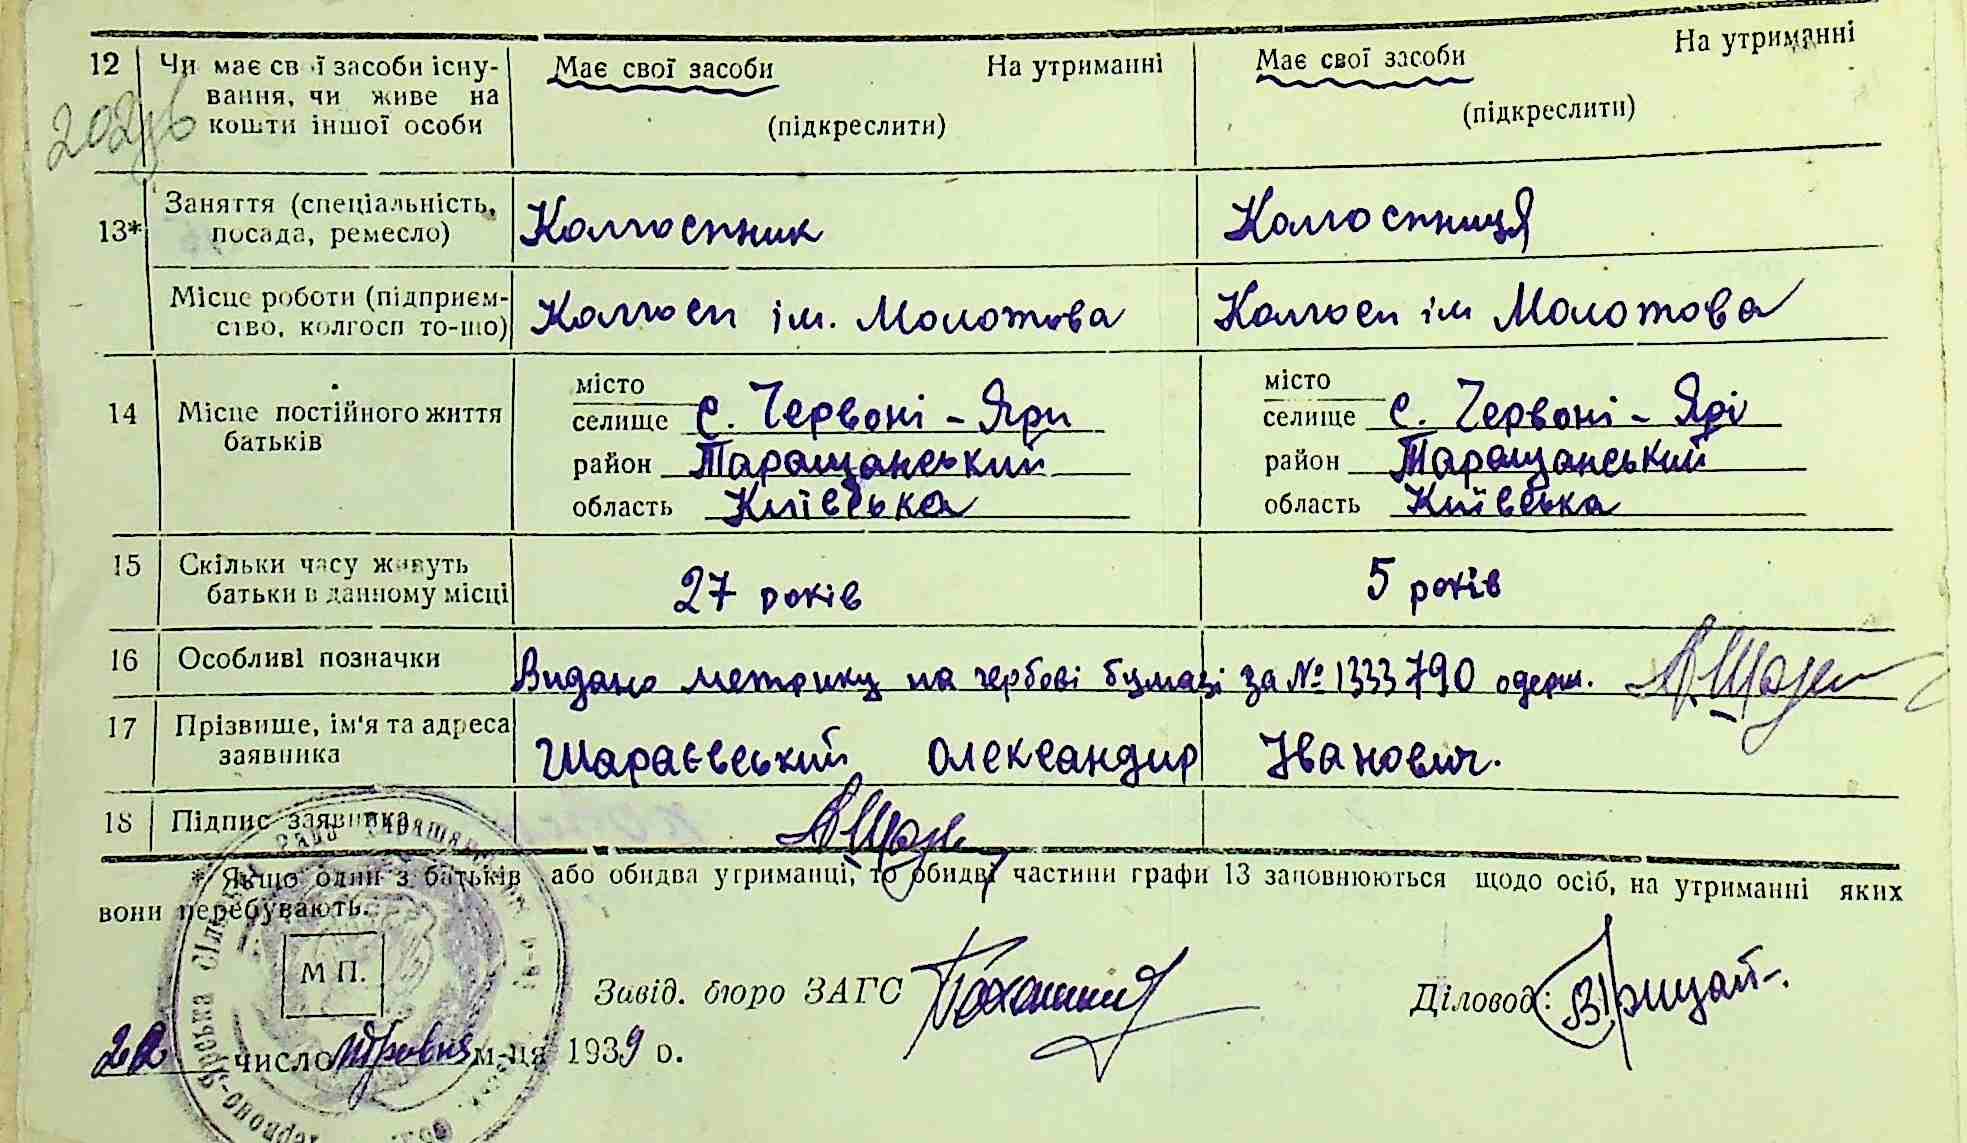 12 Чи має свої засоби існу- Має свої засоби На утриманні Має свої засоби На утриманні
вання, чи живе на
кошти іншої особи (підкреслити) (підкреслити)
13* Заняття (спеціальність, Колгоспник Колгоспниця
посада, ремесло)
Місце роботи (підприєм- Колгосп ім. Молотова Колгосп ім Молотова
ство, колгосп то-що)
14 Місце постійного життя місто місто
батьків селище с. Червоні-Яри селище с. Червоні-Ярі
район Таращанський район Таращанський
область Київська область Київська
15 Скільки часу живуть 27 років 5 років
батьки в данному місці
16 Особливі позначки Видано метрику на гербові бумазі за № 1333790 одерж.
17 Прізвище, ім'я та адреса Шараєвський Олександир Іванович.
заявника
18 Підпис заявника
* Якщо один з батьків або обидва утриманці, то обидві частини графи 13 заповнюються щодо осіб, на утриманні яких
вони перебувають.
М П.
Завід. бюро ЗАГС Діловод: Грицай
22 число травня м-ця 1939 о.